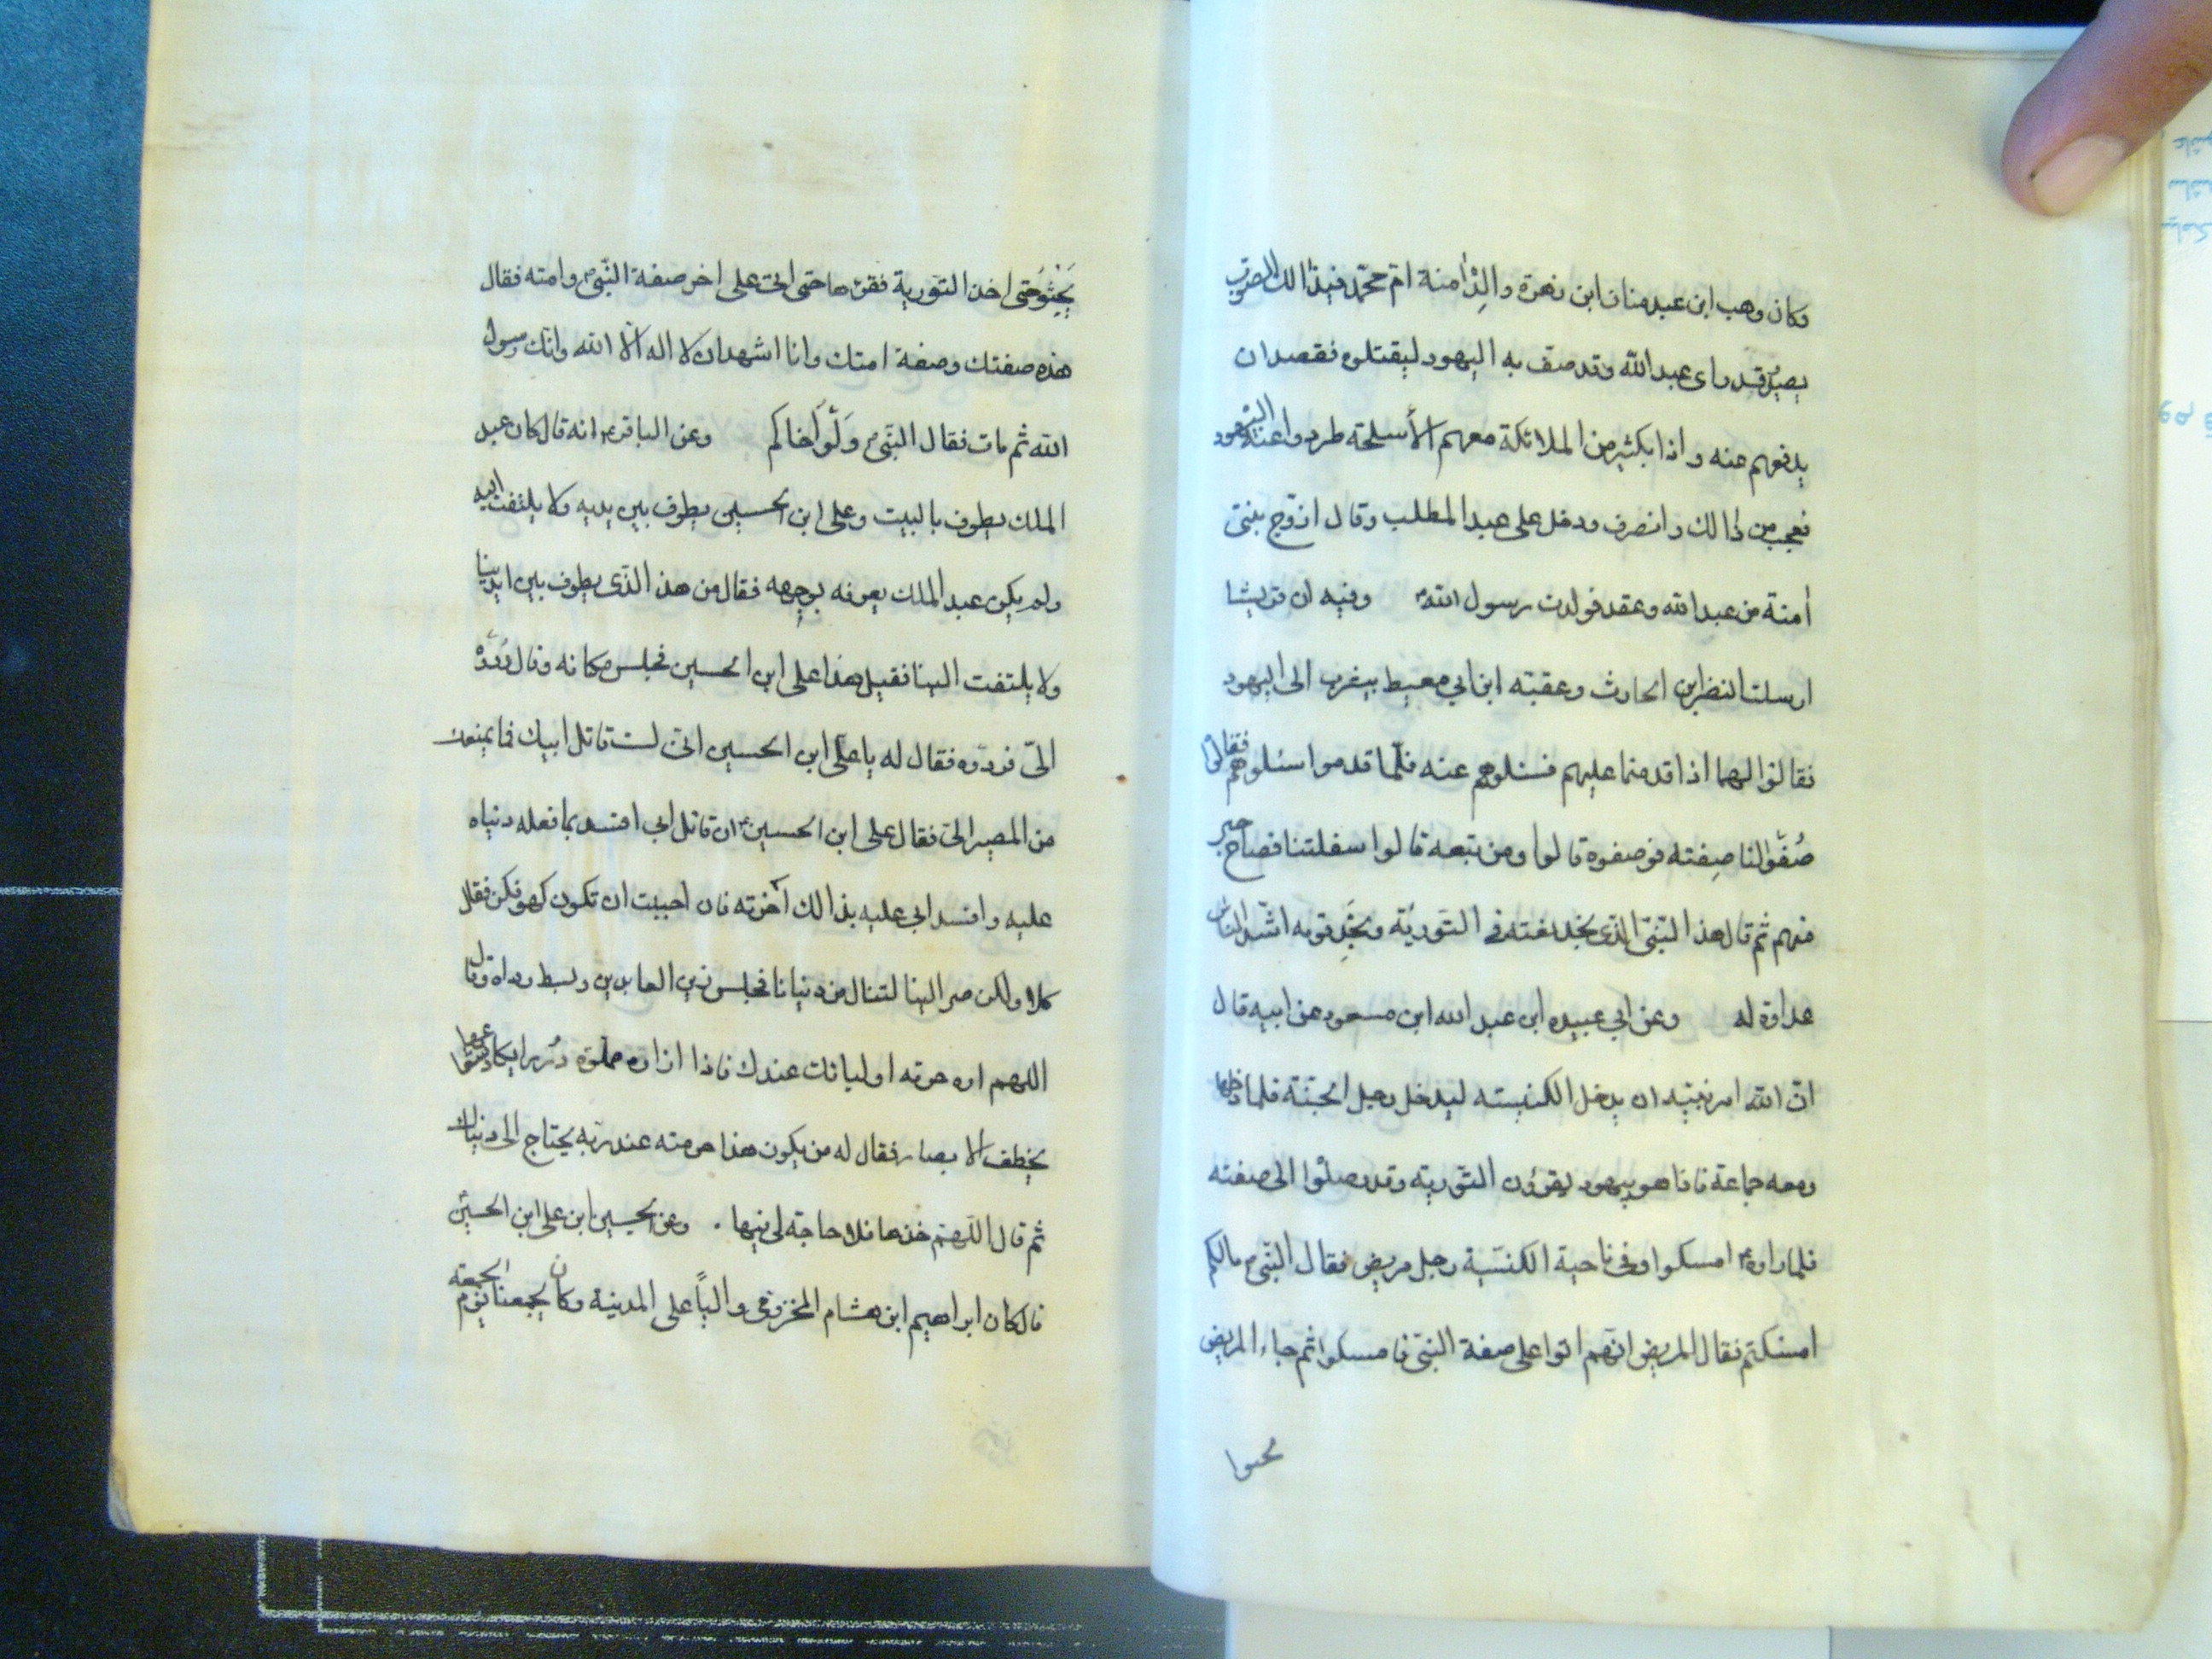 وكان وهب ابن عبد مناف ابن زهرة والِدْ اٰمنة امّ محمّد فيذٰالك الصوب
يصير قد رای عبد اللّٰه وقد صفّ به اليهود ليقتلوه فقصد ان
يدفعهم عنه واذا بكثير من الملائكة معهم الأسلحة طردوا عنه اليهود
فعجب من ذٰالك وانصرف ودخل على عبد المطلب وقال ازوّج بنتي
اٰمنة من عبد الله وعقد فولدت رسول الله ص وفيه ان قريشا
ارسلت النظر ابن الحارث وعقبته ابن ابي معيط بيثرب الى اليهود
فقالوا لهما اذا قدمتما عليهم فسئلوهم عنه فلمّا قدموا سئلوهم فقالوا
صُفُوا لنا صِفته فوصفوه قالوا ومن تبعه قالوا سفلتنا فصاح حبر
منهم ثم قال هذ النّبیّ الذی نجد نعته فی التورٰية ونجِد قومه اشدّ الناس
عداوة له وعن ابي عبيده ابن عبد الله ابن مسعود عن ابيه قال
انّ الله امر نبيّه ان يدخل الكنيسته ليدخل رجل الجنّة فلما دخلها
ومعه جماعة فاذا هو بيهود يقرؤن التّورية وقد وصلوا الى صفته
فلما راوه امسكوا وفی ناحية الكنسية رجل مريض فقال النّبی ص مالكم
امسكتم فقال المريض انّهم اتوا على صفة النبیّ فامسكوا ثم جاء المريض
يَجْثُو حَتی اخذ التّورية فقرءها حتی اتی علی اخر صفة النّبیّ وامته فقال
هذه صفتك وصفة امتك وانا اشهد ان لا اله الّا الله وانّك رسول
الله ثم مات فقال النّبیّ ص وَلّوا اَخاكم وعن الباقر ع انه قال كان عبد
الملك يطوف بالبيت وعلی ابن الحسين يطوف بين يديه ولا يلتفت اليه
ولم يكن عبد الملك يعرفه بوجهه فقال من هذ الذّی يطوف بين ايدينا
ولا يلتفت الينا فقيل هذا علی ابن الحسين فجلس مكانه وقال رُدّوه
الیّ فردّوه فقال له يا علیّ ابن الحسين انّی لست قاتل ابيك فما يمنعك
من المصير الیّ فقال علی ابن الحسين ع ان قاتل ابی افسد بما فعله دنياه
عليه وافسد ابی عليه بذالك اٰخرته فان احببت ان تكون كهو فكن فقال
كلا ولكن صر الينا لتنال من دنيانا فجلس زين العابدين وبسط رداه وقال
اللهم اره حرمة اوليائك عندك فاذا ازاره مملوّة دُررا يكاد شعاعها
يخطف الابصار فقال له من يكون هذا حرمته عند ربّه يحتاج الی دنياك
ثم قال اللّهمّ خذها فلا حاجة لی فيها . وعن الحسين ابن علی ابن الحسين
قال كان ابراهيم ابن هشام المخزومی والياً علی المدينة وكان يجمعنا يوم الجمعة